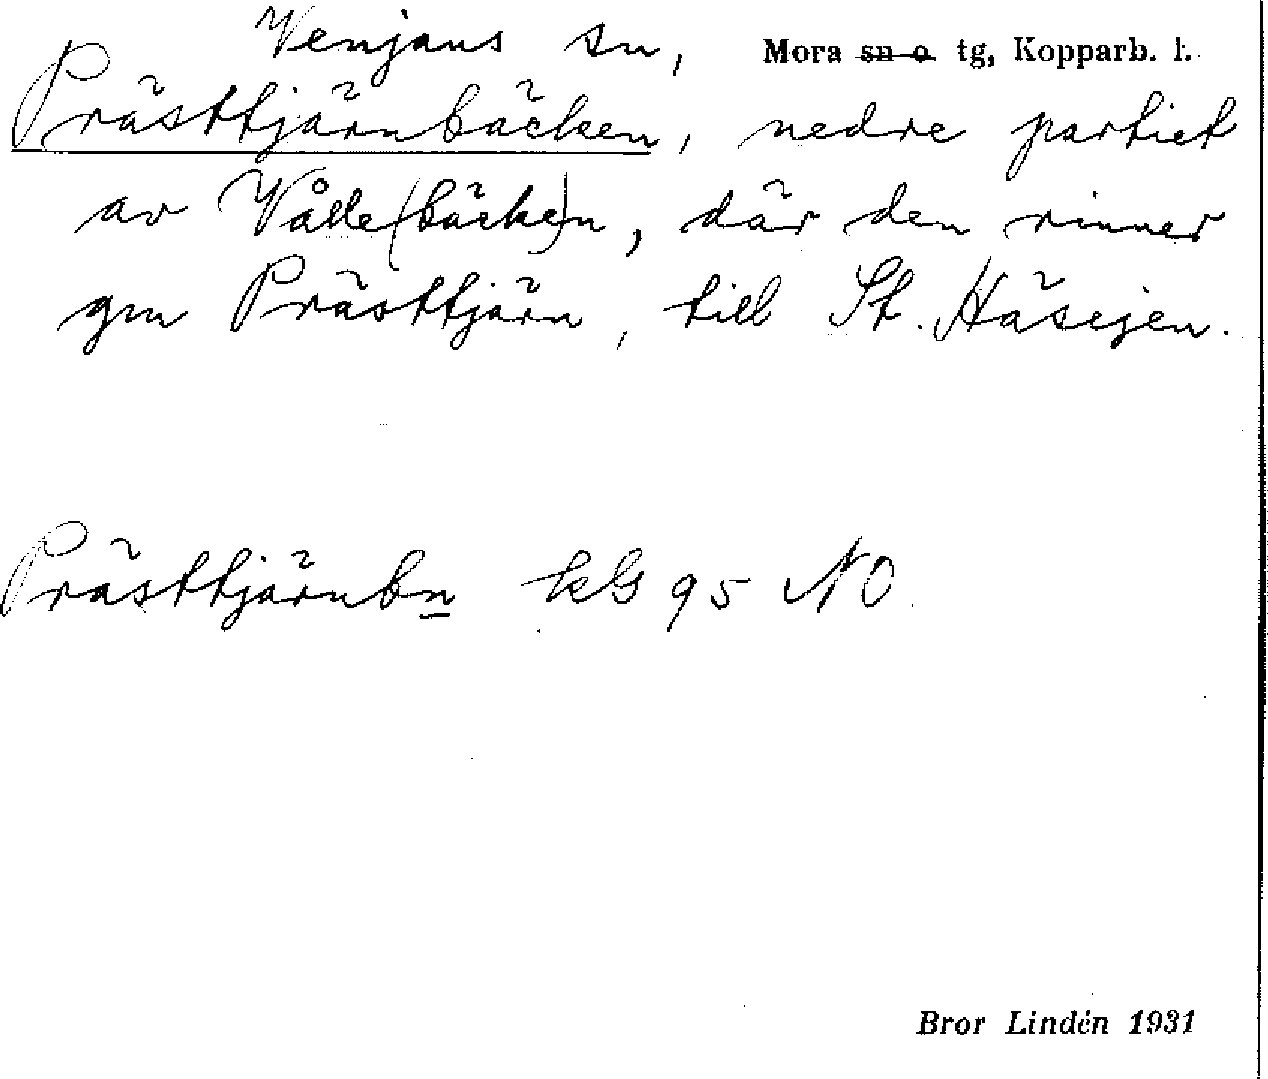 Venjans sn, Mora sn o tg, Kopparb. l.
Prästtjärnbäcken, nedre partiet
av Vålle(bäcke)n, där den rinner
gm Prästtjärn, till St. Häsejen.
Prästtjärnbn kbl 95 NO
Bror Lindén 1931